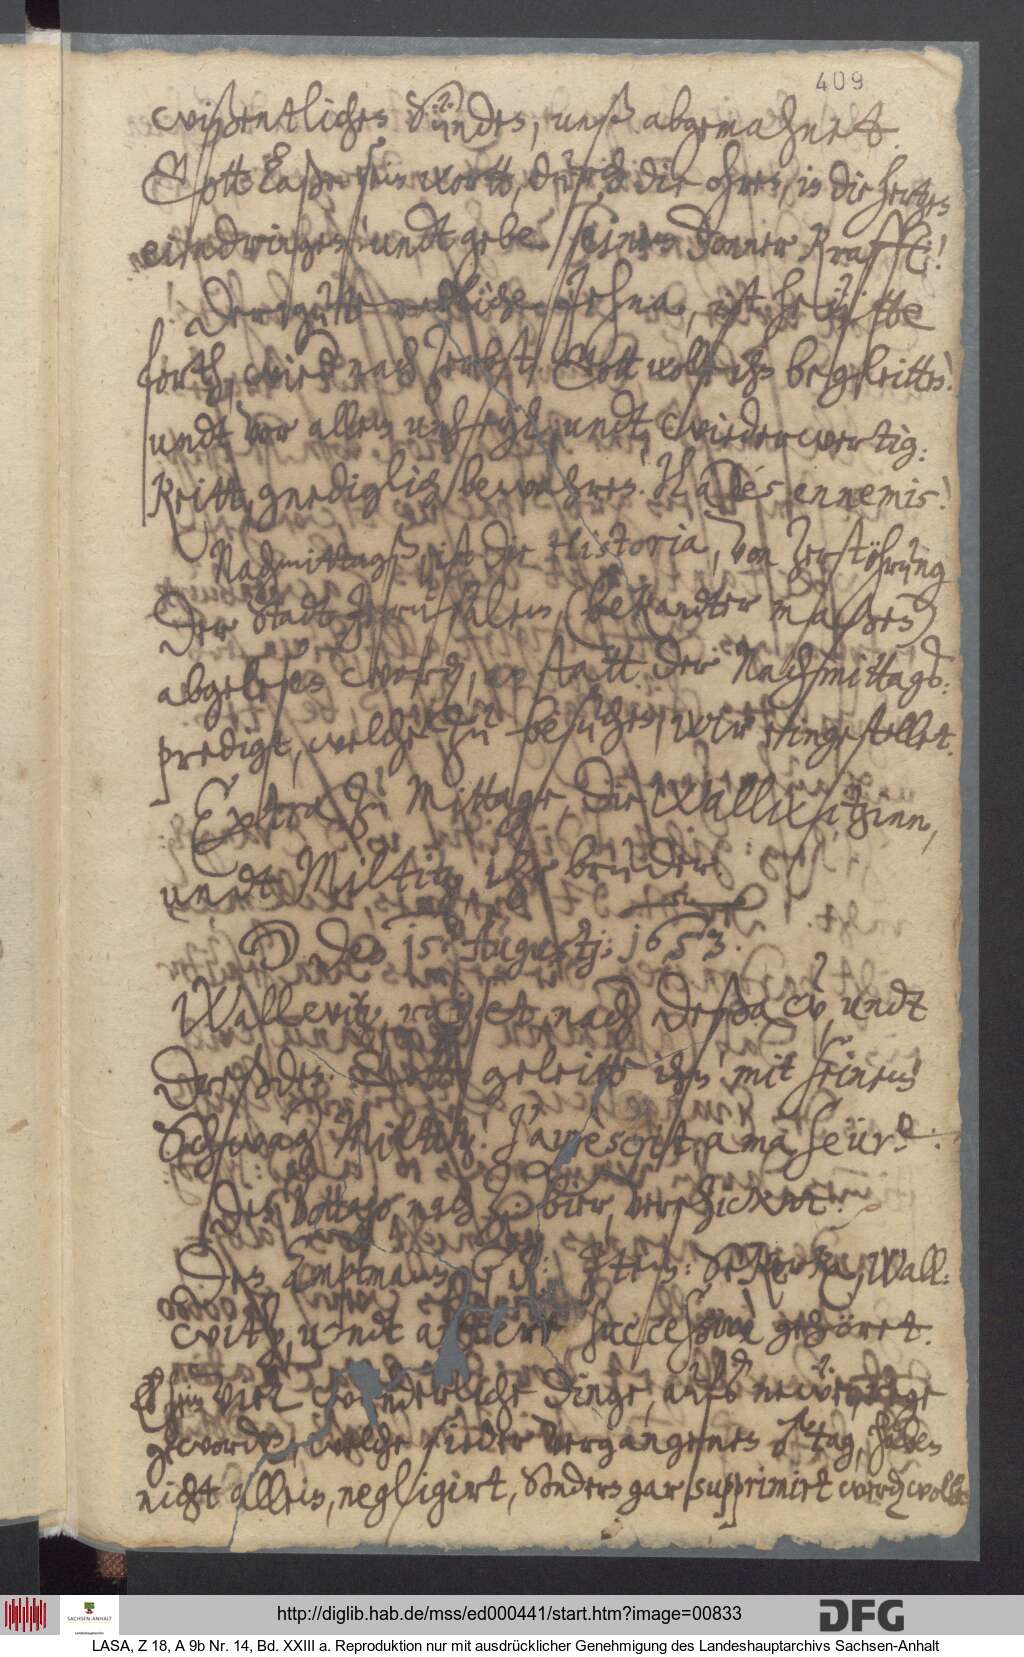 409
wißentlichen Sünden, unß abgemahnet.
Gott laße sein wortt, durch die ohren, in die hertzen
eindringen undt gebe seinen donner Krafft!
Der gutte redliche Jehna, ist heütte
forth, wied nach Zerbst. Gott wolle ihn begleitten!
undt vor allem unfall, undt wiederwertig:
Keitt, gnediglich bewahren! Il a des ennemis!
Nachmittagß ist die Historia, von Zerstöhrung
der Stadt Jerusalem, (bekandter maßen)
abgelesen word, an statt der Nachmittags:
predigt, welche zu besuchen, wir eingestellet.
Extra zu Mittage, die Wallwitzinn,
undt Miltitz, ihr bruder.
Den 15. Augustj: 1653.
Wallwitz, rayset, nach Deßaw, undt
Dreßden. Gott geleitte ihn mit seinem
Schwag Miltitz! J'ay escrit, a ma soeur
Den Botten, nach bier, verschickt.
Den Amptmann, Jtem: Wall:
witz, undt andere successivè gehöret.
Es sein viel wunderliche dinge, aufs newe rege
geworden, welche sieder vergangenen tag, haben
nicht allein, negligirt, sondern gar supprimirt werden wollen
http://diglib.hab.de/mss/ed000441/start.htm?image=00833
SACHSEN-ANHALT
DFG
LASA, Z 18, A 9b Nr. 14, Bd. XXIII a. Reproduktion nur mit ausdrücklicher Genehmigung des Landeshauptarchivs Sachsen-Anhalt